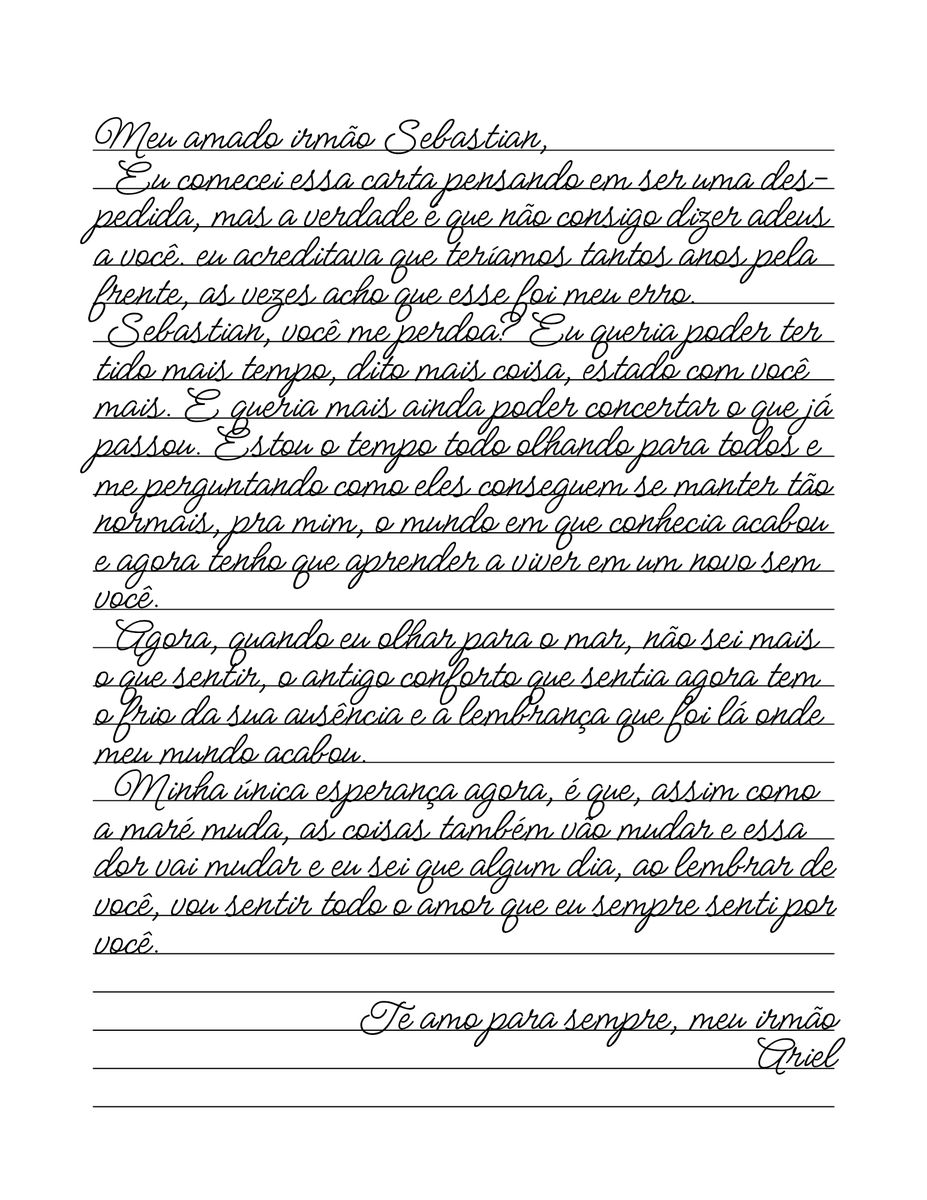 Meu amado irmão Sebastian,
Eu comecei essa carta pensando em ser uma des-
pedida, mas a verdade é que não consigo dizer adeus
a você. eu acreditava que teríamos tantos anos pela
frente, as vezes acho que esse foi meu erro.
Sebastian, você me perdoa? Eu queria poder ter
tido mais tempo, dito mais coisa, estado com você
mais. E queria mais ainda poder concertar o que já
passou. Estou o tempo todo olhando para todos e
me perguntando como eles conseguem se manter tão
normais, pra mim, o mundo em que conhecia acabou
e agora tenho que aprender a viver em um novo sem
você.
Agora, quando eu olhar para o mar, não sei mais
o que sentir, o antigo conforto que sentia agora tem
o frio da sua ausência e a lembrança que foi lá onde
meu mundo acabou.
Minha única esperança agora, é que, assim como
a maré muda, as coisas também vão mudar e essa
dor vai mudar e eu sei que algum dia, ao lembrar de
você, vou sentir todo o amor que eu sempre senti por
você.
Te amo para sempre, meu irmão
Ariel